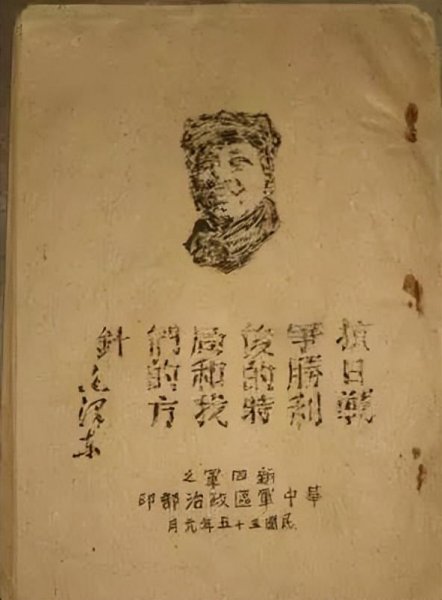 抗日戰
爭勝利
後的時
局和我
們的方
針
毛澤东
新四軍之
華中軍區政治部印
民國三十五年元月